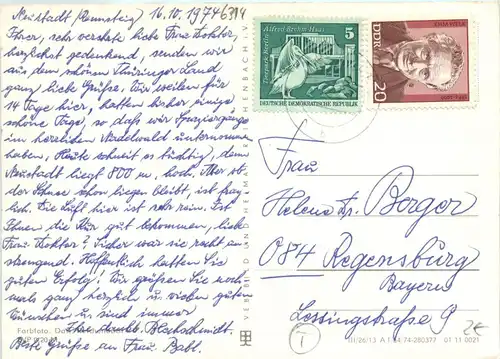 Neustadt/Rennsteig, 16.10.1974 6314
Ihrer, sehr verehrte liebe Frau Doktor,
herzlichst gedenkend, senden wir
aus dem schönen Thüringer Land
ganz liebe Grüße. Wir weilen für
14 Tage hier, hatten bisher einige
schöne Tage, so daß wir Spaziergänge
im herrlichen Nadelwald unternommen
haben, Heute schneit es tüchtig, denn
Neustadt liegt 800 m. hoch. Aber ob
der Schnee schon liegen bleibt, ist frag-
lich. Die Luft hier ist sehr rein. Ist
Ihnen die Kur gut bekommen, liebe
Frau Doktor? Sicher war sie recht an-
strengend. Hoffentlich hatten Sie
guten Erfolg! Wir grüßen Sie noch-
mals ganz herzlich u. vielen guten
Wünschen u. sind immer
Ihre dankb.
Beste Grüße an Frau
Farbfoto:
VEB BILD UND HEIMAT REICHENBACH I. V.
Alfred Brehm-Haus
Tierpark Berlin
5
DEUTSCHE DEMOKRATISCHE REPUBLIK
DDR
20
Frau
Helene Dr. Berger
084 Regensburg
Bayern
Lessingstraße 9
2€
III/26/13 A 1/84/74 280377 01 11 0021